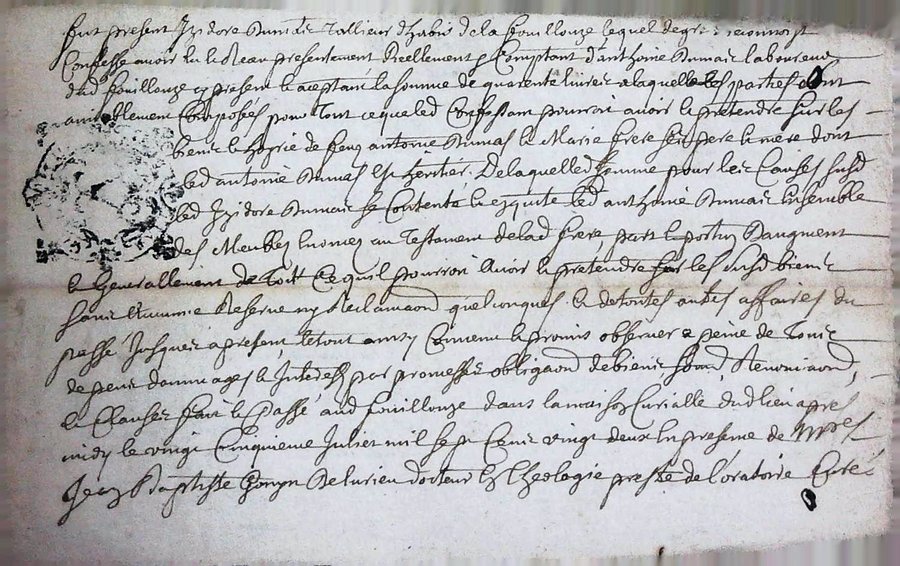 fut present Izidore Dumas Tallieur dhabis de la fouillouze lequel de gré reconnoist
Confesse avoir eu & Receu presentement Reellement & Comptant d'anthoine Dumas laboureur
dud fouillouze cy present & aceptant la somme de quarente livres a laquelle les parties sont
amiablement Composés pour tout ce que led Confessant pourroit avoir & pretendre sur les
biens & hoirie de feuz antoine Dumas & Marie frere ses pere & mere dont
led antoine Dumas est heritier. De laquelle somme pour les Causes susd
led Izidore Dumas se Contente & en quite led anthoine Dumas Ensemble
des Meubles enoncez au Testament de lad frere, part & portion Daugment
& Generallement de tout Ce quil pourroit Avoir & pretendre sur les susd biens
sans Aucune Reserve ny Reclamaon quelconques & de toutes autres affaires du
passé Jusques a present, le tout ainsy Convenu & promis observer a peine de tous
depens dommages & Interests par promesses obligaon de biens soumd, Renonciaond,
& Clauses fait & Passé aud fouillouze dans la maison Curialle dud lieu apres
midy le vingt Cinquieme Juliet mil sept Cens vingt deux En presence de Mres
Jean Baptiste Gonyn De lurieu docteur En theologie prestre de l'oratoire Curé